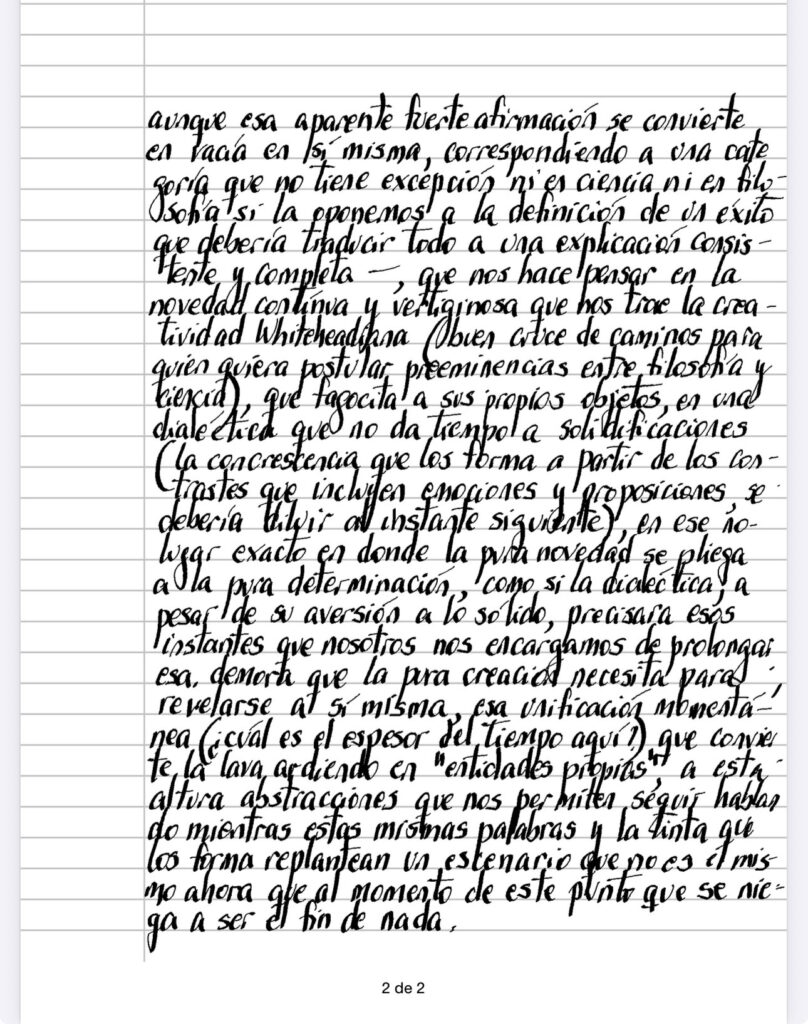 aunque esa aparente fuerte afirmación se convierte
en vacía en sí misma, correspondiendo a una cate
goría que no tiene excepción ni en ciencia ni en filo-
sofía si la oponemos a la definición de un éxito
que debería traducir todo a una explicación consis-
tente y completa —, que nos hace pensar en la
novedad continua y vertiginosa que nos trae la crea-
tividad Whiteheadiana (buen cruce de caminos para
quien quiera postular preeminencias entre filosofía y
ciencia), que fagocita a sus propios objetos, en una
dialéctica que no da tiempo a solidificaciones
(la concrescencia que los forma a partir de los con-
trastes que incluyen emociones y proposiciones, se
debería diluir al instante siguiente), en ese no-
lugar exacto en donde la pura novedad se pliega
a la pura determinación, como si la dialéctica, a
pesar de su aversión a lo sólido, precisara esos
instantes que nosotros nos encargamos de prolongar,
esa demora que la pura creación necesita para
revelarse a sí misma, esa unificación momentá-
nea (¿cuál es el espesor del tiempo aquí?) que convier
te la lava ardiendo en "entidades propias", a esta
altura abstracciones que nos permiten seguir hablan
do mientras estas mismas palabras y la tinta que
los forma replantean un escenario que no es el mis-
mo ahora que al momento de este punto que se nie-
ga a ser el fin de nada.
2 de 2